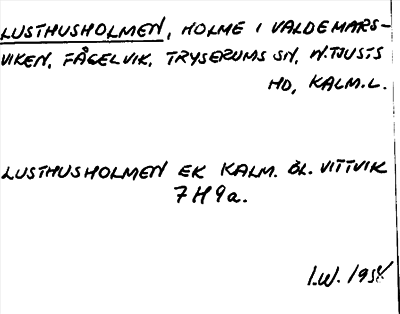 LUSTHUSHOLMEN, HOLME I VALDEMARS-
VIKEN, FÅGELVIK, TRYSERUMS SN, N.TJUSTS
HD, KALM.L.
LUSTHUSHOLMEN EK KALM. BL. VITTVIK
7H9a.
I.W.